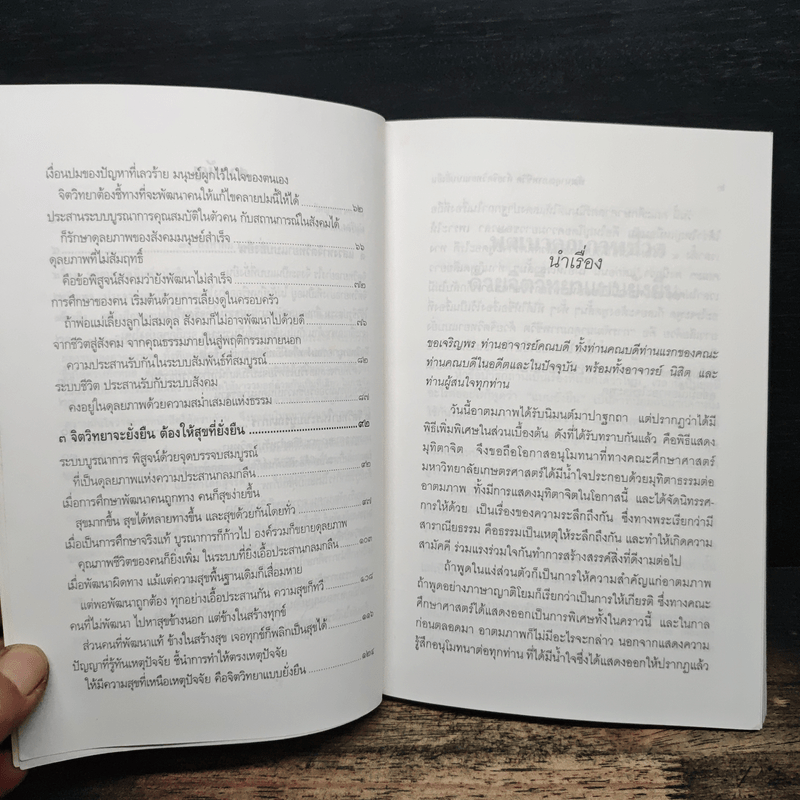 เงื่อนปมของปัญหาที่เลวร้าย มนุษย์ผูกไว้ในใจของตนเอง
จิตวิทยาต้องชี้ทางที่จะพัฒนาคนให้แก้ไขคลายปมนี้ให้ได้ ........ ๖๒
ประสานระบบบูรณาการคุณสมบัติในตัวคน กับสถานการณ์ในสังคมได้
ก็รักษาดุลยภาพของสังคมมนุษย์สำเร็จ ........ ๖๖
ดุลยภาพที่ไม่สัมฤทธิ์
คือข้อพิสูจน์สังคมว่ายังพัฒนาไม่สำเร็จ ........ ๗๒
การศึกษาของคน เริ่มต้นด้วยการเลี้ยงดูในครอบครัว
ถ้าพ่อแม่เลี้ยงลูกไม่สมดุล สังคมก็ไม่อาจพัฒนาไปด้วยดี ........ ๗๖
จากชีวิตสู่สังคม จากคุณธรรมภายในสู่พฤติกรรมภายนอก
ความประสานรับกันในระบบสัมพันธ์ที่สมบูรณ์ ........ ๘๒
ระบบชีวิต ประสานรับกับระบบสังคม
คงอยู่ในดุลยภาพด้วยความสม่ำเสมอแห่งธรรม ........ ๘๗
๓ จิตวิทยาจะยั่งยืน ต้องให้สุขที่ยั่งยืน ........ ๙๒
ระบบบูรณาการ พิสูจน์ด้วยจุดบรรจบสมบูรณ์
ที่เป็นดุลยภาพแห่งความประสานกลมกลืน ........ ๙๒
เมื่อการศึกษาพัฒนาคนถูกทาง คนก็สุขง่ายขึ้น
สุขมากขึ้น สุขได้หลายทางขึ้น และสุขด้วยกันโดยทั่ว ........ ๙๗
เมื่อเป็นการศึกษาจริงแท้ บูรณาการก็ก้าวไป องค์รวมก็ขยายดุลยภาพ
คุณภาพชีวิตของคนก็ยิ่งเพิ่ม ในระบบที่ยิ่งเอื้อประสานกลมกลืน ........ ๑๐๓
เมื่อพัฒนาผิดทาง แม้แต่ความสุขพื้นฐานเดิมก็เสื่อมหาย
แต่พอพัฒนาถูกต้อง ทุกอย่างเอื้อประสานกัน ความสุขก็ทวี ........ ๑๐๘
คนที่ไม่พัฒนา ไปหาสุขข้างนอก แต่ข้างในสร้างทุกข์
ส่วนคนที่พัฒนาแท้ ข้างในสร้างสุข เจอทุกข์ก็พลิกเป็นสุขได้ ........ ๑๑๖
ปัญญาที่รู้ทันเหตุปัจจัย ชี้นำการทำให้ตรงเหตุปัจจัย
ให้มีความสุขที่เหนือเหตุปัจจัย คือจิตวิทยาแบบยั่งยืน ........ ๑๒๔
นำเรื่อง
ขอเจริญพร ท่านอาจารย์คณบดี ทั้งท่านคณบดีท่านแรกของคณะ
ท่านคณบดีในอดีตและในปัจจุบัน พร้อมทั้งอาจารย์ นิสิต และ
ท่านผู้สนใจทุกท่าน
วันนี้อาตมภาพได้รับนิมนต์มาปาฐกถา แต่ปรากฏว่าได้มี
พิธีเพิ่มพิเศษในส่วนเบื้องต้น ดังที่ได้รับทราบกันแล้ว คือพิธีแสดง
มุทิตาจิต จึงขอถือโอกาสอนุโมทนาที่ทางคณะศึกษาศาสตร์
มหาวิทยาลัยเกษตรศาสตร์ได้มีน้ำใจประกอบด้วยมุทิตาธรรมต่อ
อาตมภาพ ทั้งมีการแสดงมุทิตาจิตในโอกาสนี้ และได้จัดนิทรรศ-
การให้ด้วย เป็นเรื่องของความระลึกถึงกัน ซึ่งทางพระเรียกว่ามี
สาราณียธรรม คือธรรมเป็นเหตุให้ระลึกถึงกัน และทำให้เกิดความ
สามัคคี ร่วมแรงร่วมใจกันทำการสร้างสรรค์สิ่งที่ดีงามต่อไป
ถ้าพูดในแง่ส่วนตัวก็เป็นการให้ความสำคัญแก่อาตมภาพ
ถ้าพูดอย่างภาษาญาติโยมก็เรียกว่าเป็นการให้เกียรติ ซึ่งทางคณะ
ศึกษาศาสตร์ได้แสดงออกเป็นการพิเศษทั้งในคราวนี้ และในกาล
ก่อนตลอดมา อาตมภาพก็ไม่มีอะไรจะกล่าว นอกจากแสดงความ
รู้สึกอนุโมทนาต่อทุกท่าน ที่ได้มีน้ำใจซึ่งได้แสดงออกให้ปรากฏแล้ว